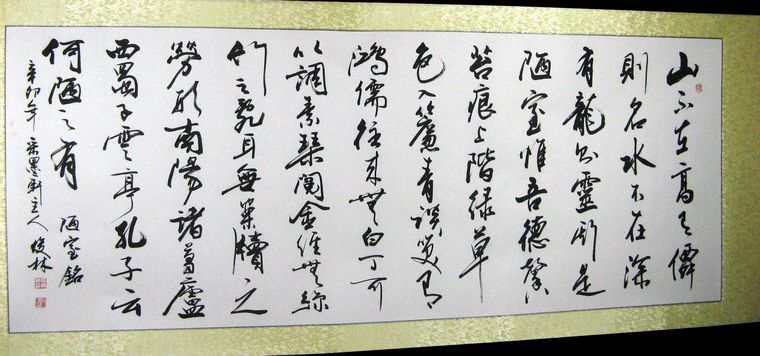 山不在高有僊
則名水不在深
有龍則靈斯是
陋室惟吾德馨
苔痕上階緑草
色入簾青談笑有
鴻儒往來無白丁可
以調素琴閱金經無絲
竹之亂耳無案牘之
勞形南陽諸葛廬
西蜀子雲亭孔子云
何陋之有 陋室銘
辛卯年 墨軒主人 俊林